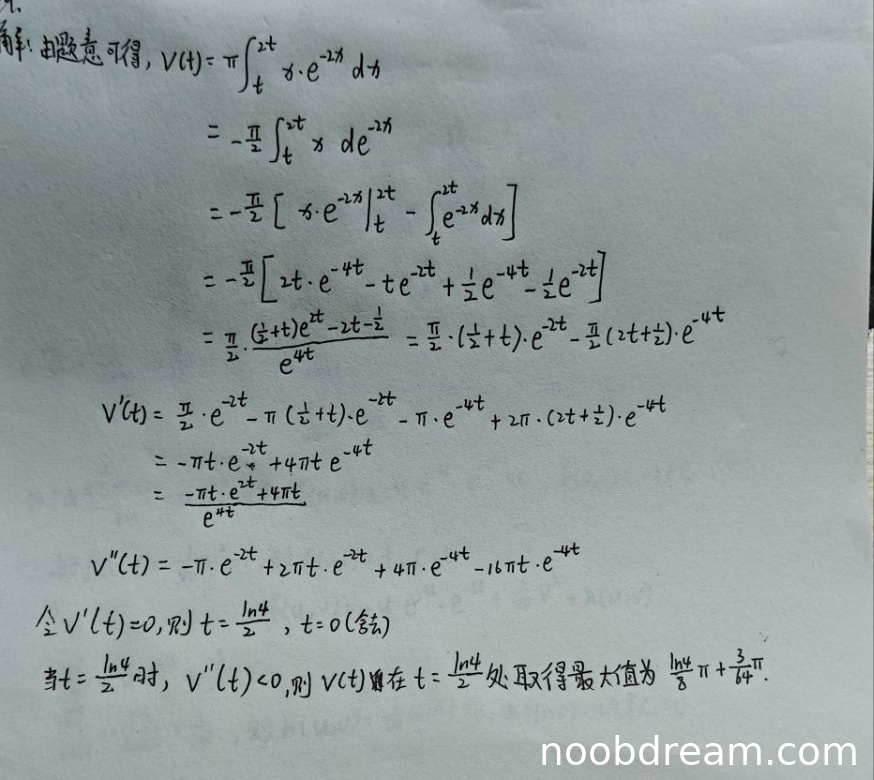 解: 由题意可得, V(t) = π∫_t^{2t} x·e^{-2x} dx
= -π/2 ∫_t^{2t} x de^{-2x}
= -π/2 [ x·e^{-2x}|_t^{2t} - ∫_t^{2t} e^{-2x}dx]
= -π/2 [2t·e^{-4t} - te^{-2t} + 1/2 e^{-4t} - 1/2 e^{-2t}]
= π/2 · ((1/2+t)e^{2t} - 2t - 1/2)/e^{4t} = π/2 ·(1/2+t)·e^{-2t} - π/2 (2t+1/2)·e^{-4t}
V'(t) = π/2 ·e^{-2t} - π(1/2+t)·e^{-2t} - π·e^{-4t} + 2π·(2t+1/2)·e^{-4t}
= -πt·e^{-2t} + 4πt e^{-4t}
= (-πt·e^{2t} + 4πt)/e^{4t}
V''(t) = -π·e^{-2t} + 2πt·e^{-2t} + 4π·e^{-4t} - 16πt·e^{-4t}
令V'(t)=0, 则 t = ln4/2 , t=0(舍去)
当t = ln4/2 时, V''(t)<0, 则 V(t)在 t = ln4/2 处取得最大值为 ln4/8 π + 3/64 π.
noobdream.com